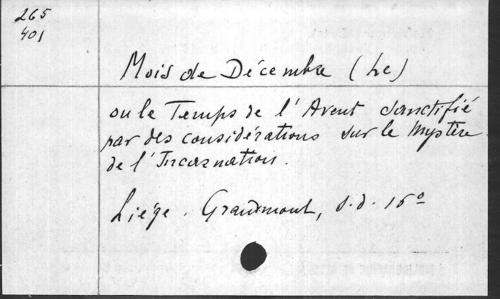 265
401
Mois de Décembre (Le)
ou le Temps de l'Avent sanctifié
par des considérations sur le Mystère
de l'Incarnation.
Liége. Grandmont, s.d. 16°